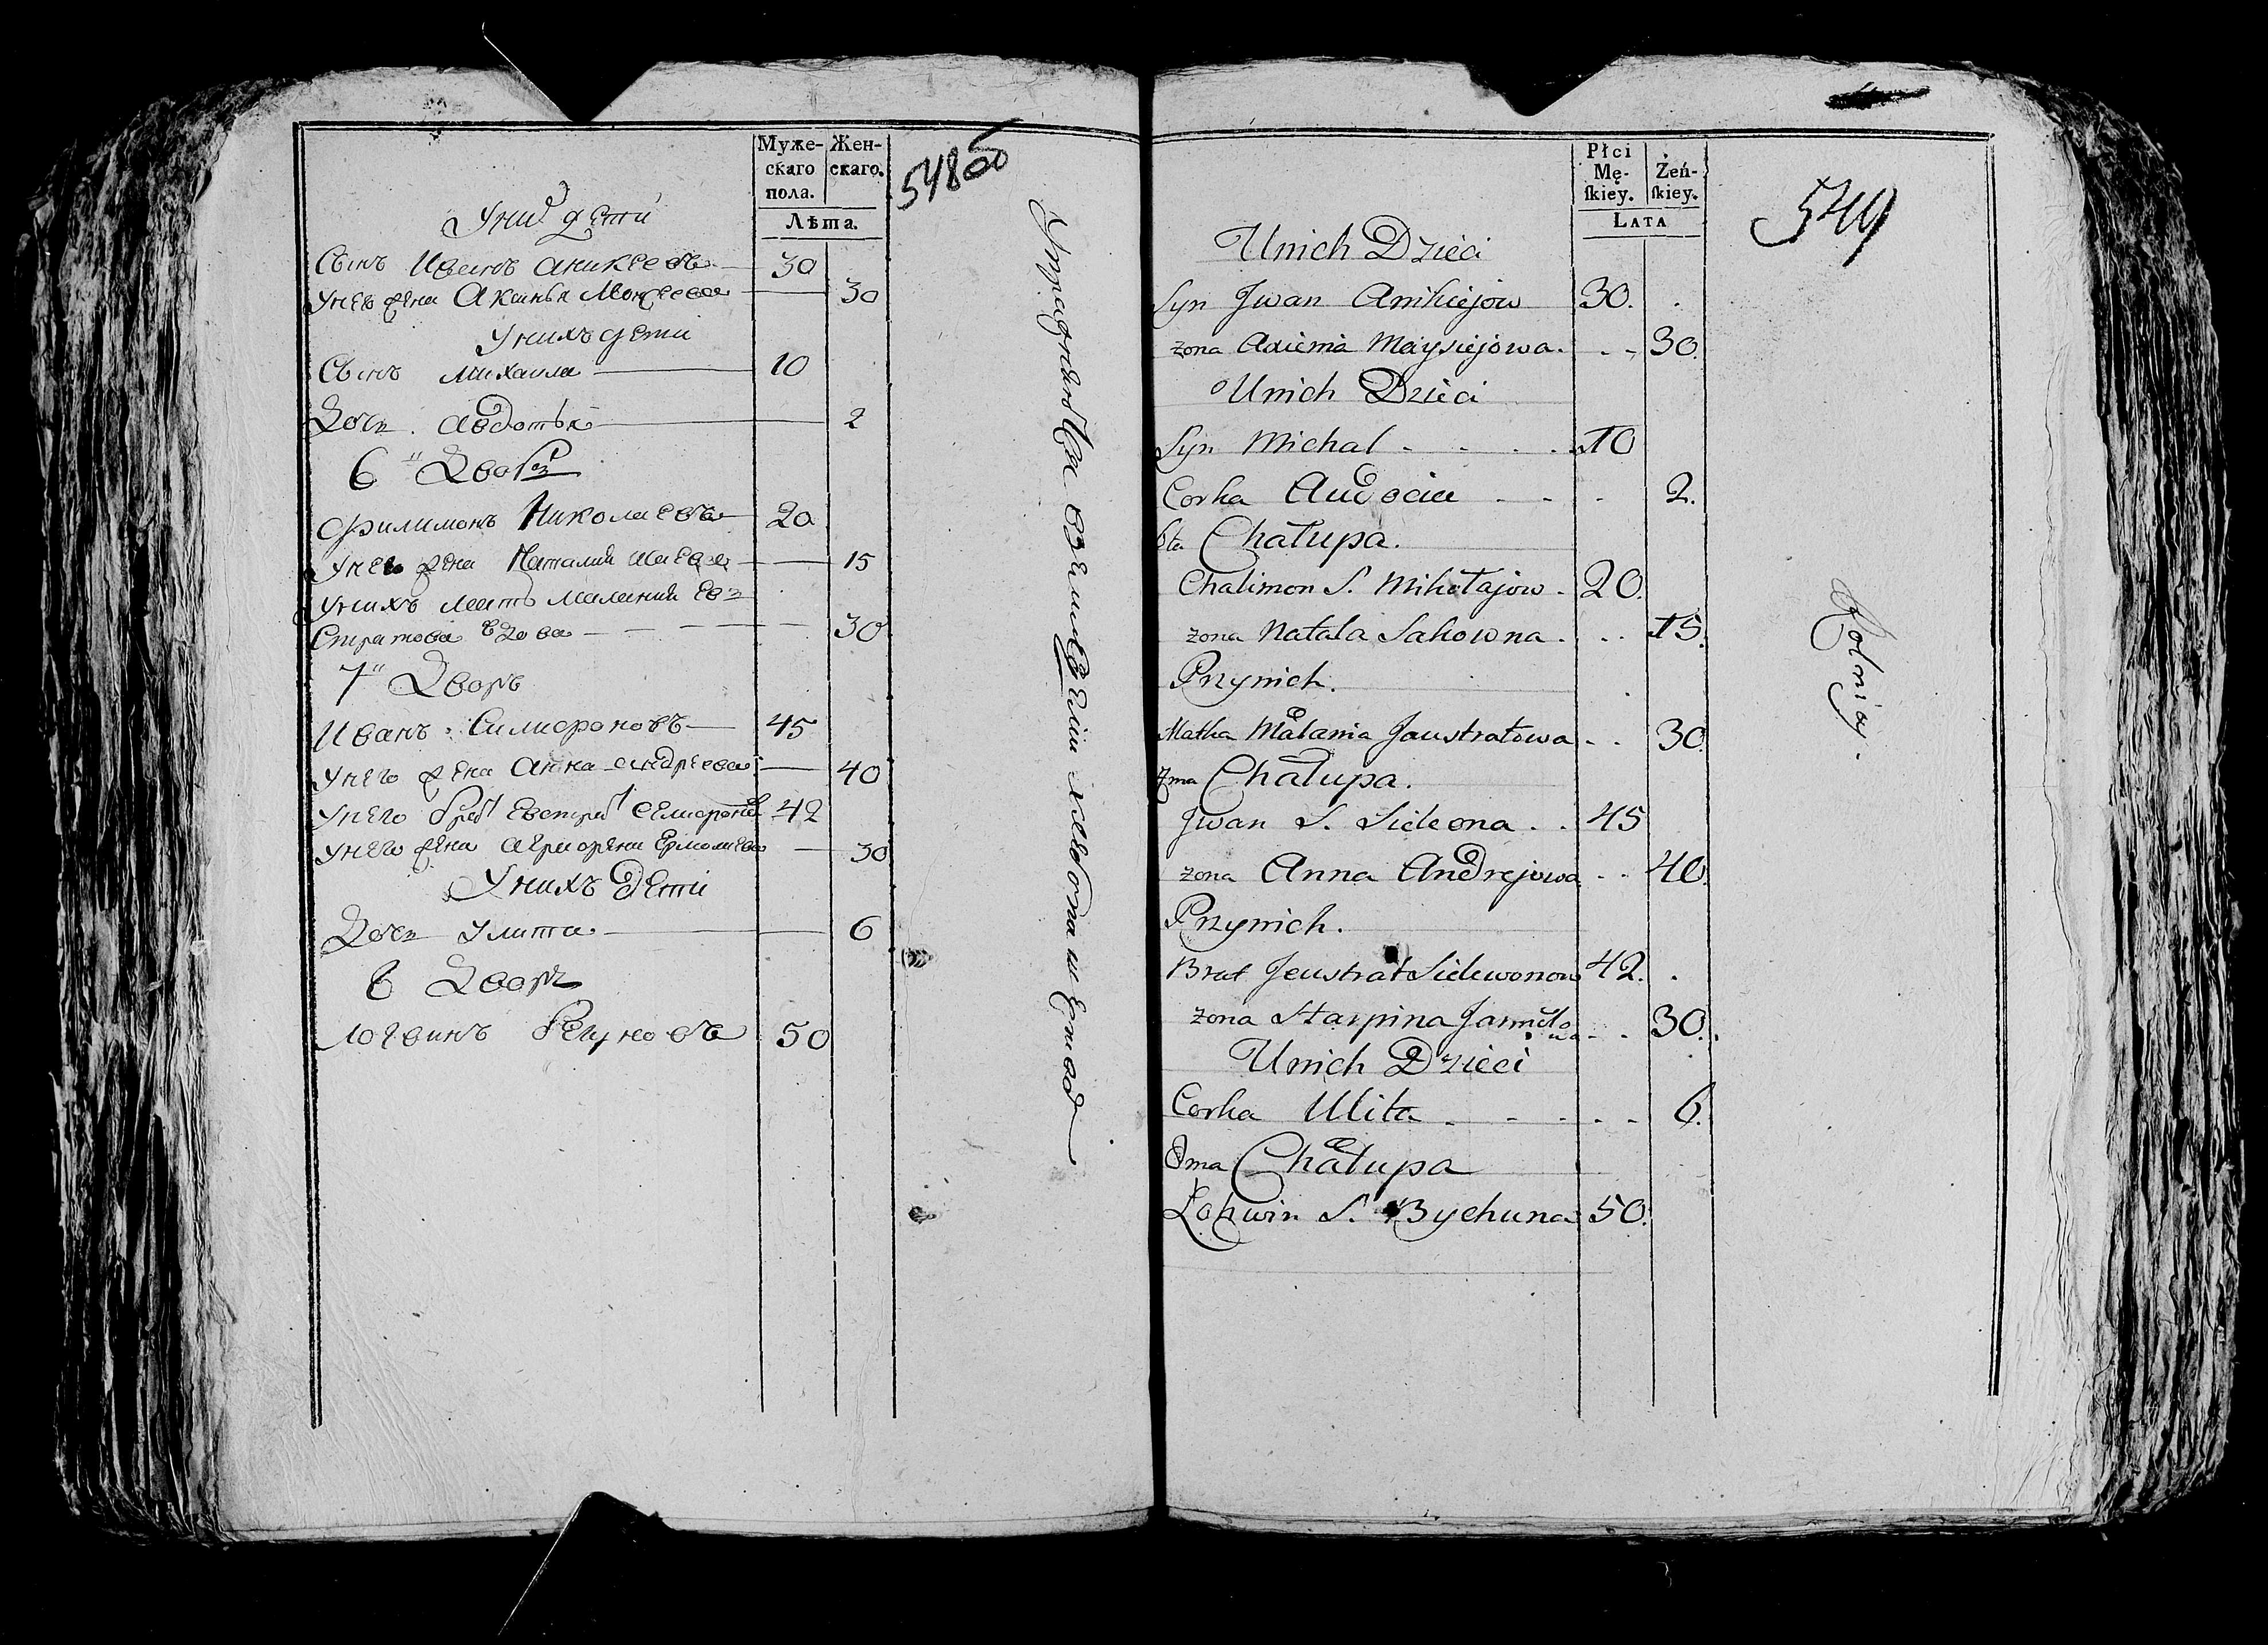 Муже-
скаго
пола.
Жен-
скаго.
Лѣта.
548об
Уних дети
Сынъ Иванъ Аникеевъ 30
Унего жена Аксинья Мойсеева 30
Унихъ дети
Сынъ Михаила 10
Дочь Авдотья 2
6й Дворъ
Филимонъ Николаевъ 20
Унего жена Наталия 15
Унихъ мать Малания Ев
Стратова вдова 30
7й Дворъ
Иванъ 45
Унего жена Анна Андреева 40
Унего брат Евстрат 42
Унего жена Ермолаева 30
Унихъ дети
Дочь Улита 6
8 Дворъ
Логвинъ 50
Płci
Mę-
ſkiey.
Żeń-
ſkiey.
LATA
549
Unich Dzieci
Syn Jwan Anikiejow 30.
zona Axienia Maysiejowa. 30.
Unich Dzieci
Syn Michal 10
Corka Audocia 2.
6ta Chałupa.
Chalimon S. Mikołajow 20.
zona Natala Sakowna 15.
Przynich.
Matka Małania Jaustratowa 30.
7ma Chałupa.
Jwan S. Sideona 45
zona Anna Andrejowa 40.
Przynich.
Brat Jeustrat Sidewonow 42.
zona Harpina Jarmoło
wa 30.
Unich Dzieci
Corka Ulita 6.
8ma Chałupa
Łohwin S. Bychuna 50.
Rolnicy.